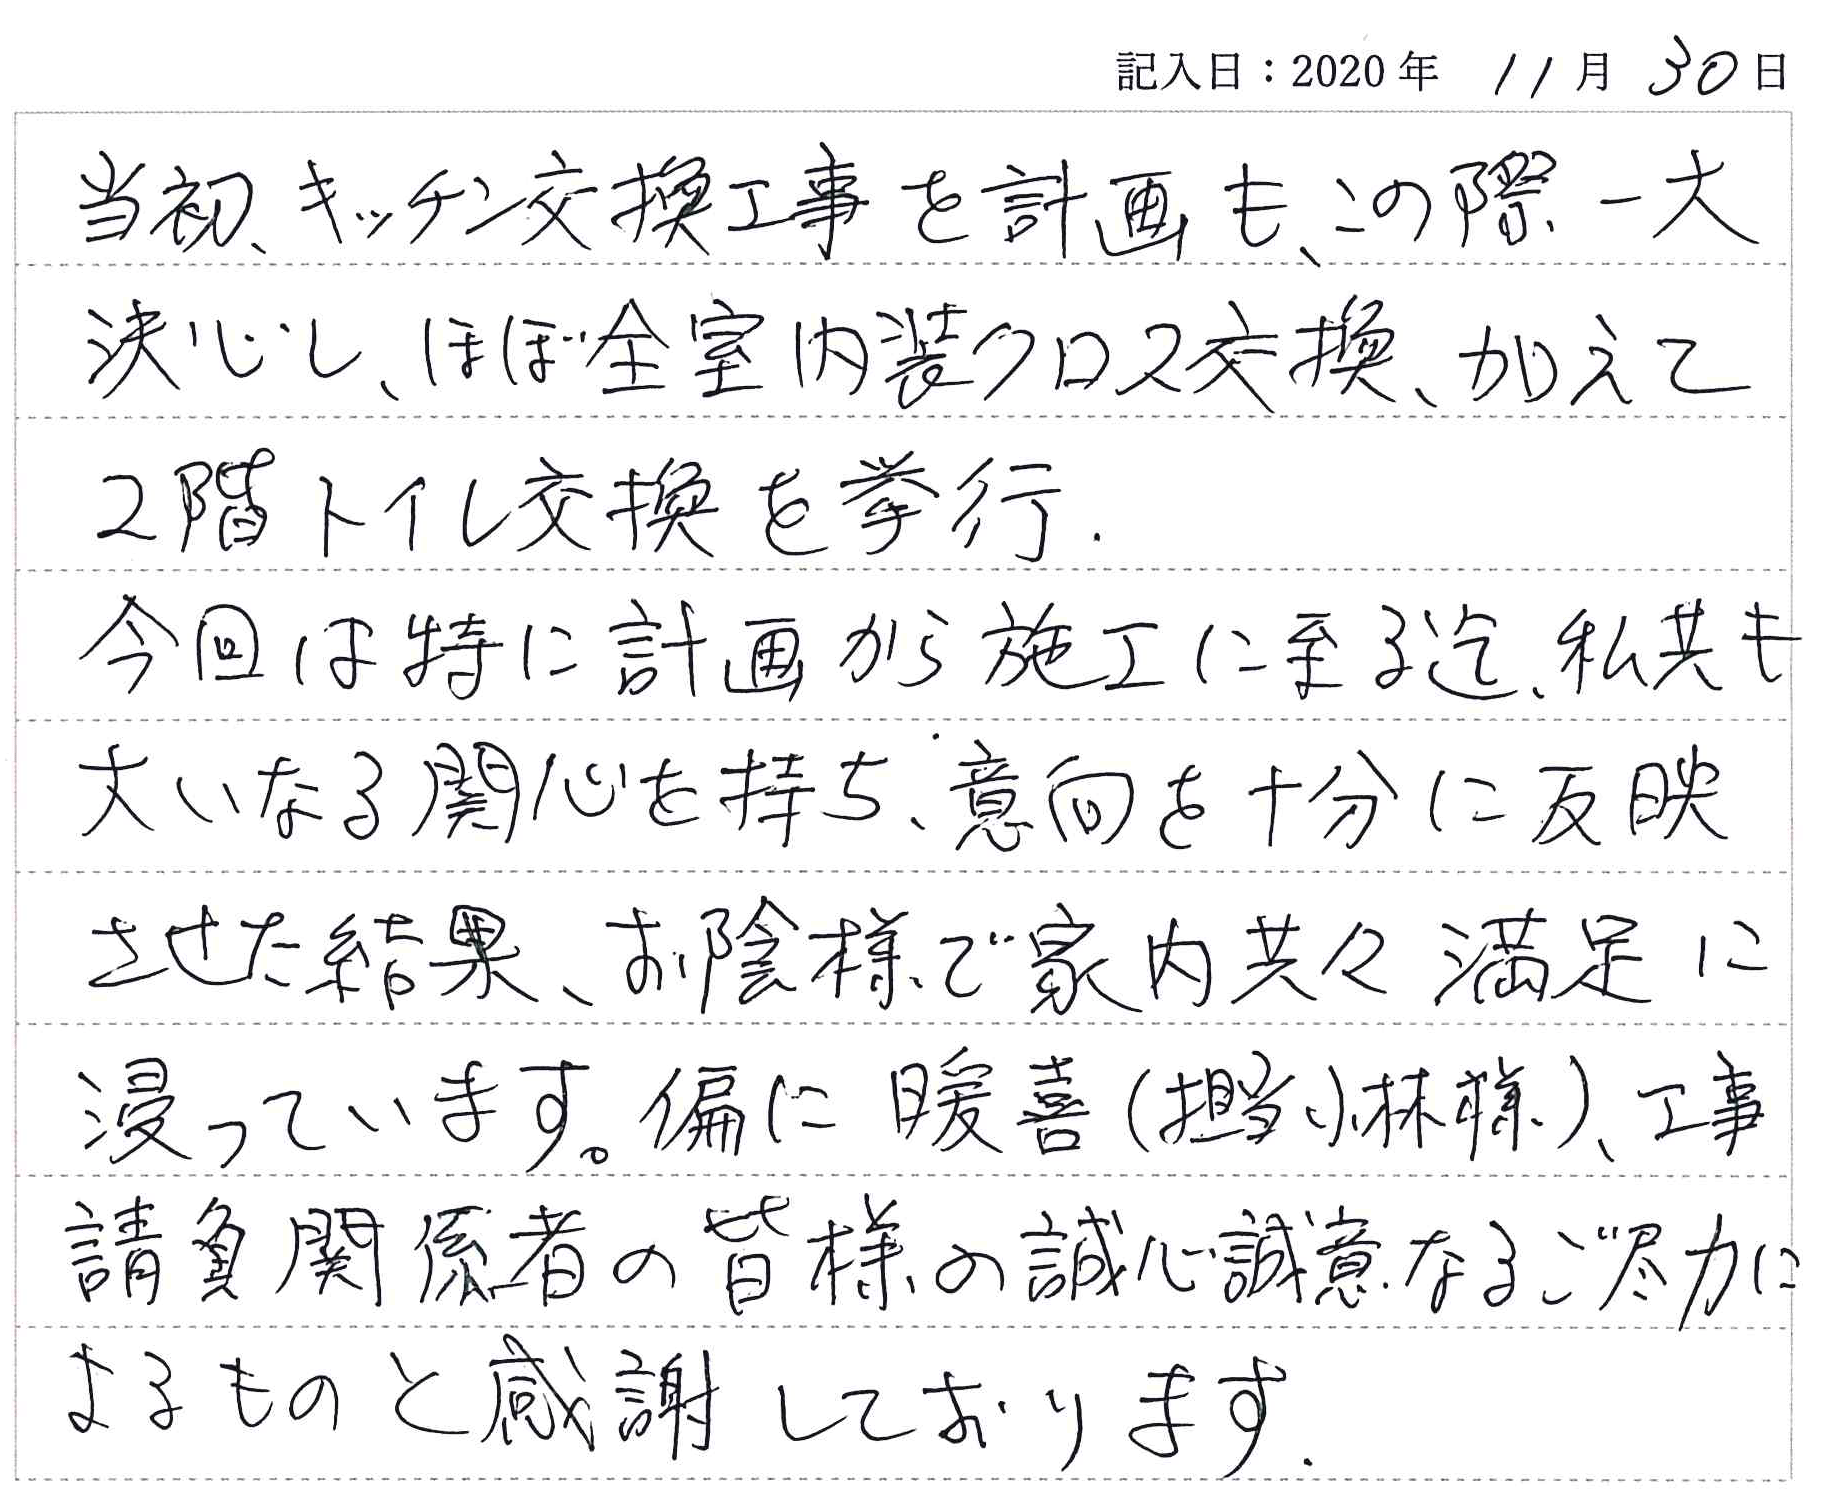 記入日：2020年 11月 30日
当初、キッチン交換工事を計画も、この際一大
決心し、ほぼ全室内装クロス交換、加えて
2階トイレ交換を挙行.
今回は特に計画から施工に至る迄、私共も
大いなる関心を持ち、意向を十分に反映
させた結果、お陰様で家内共々満足に
浸っています。偏に暖喜(担当小林様)、工事
請負関係者の皆様の誠心誠意なるご尽力に
よるものと感謝しております.